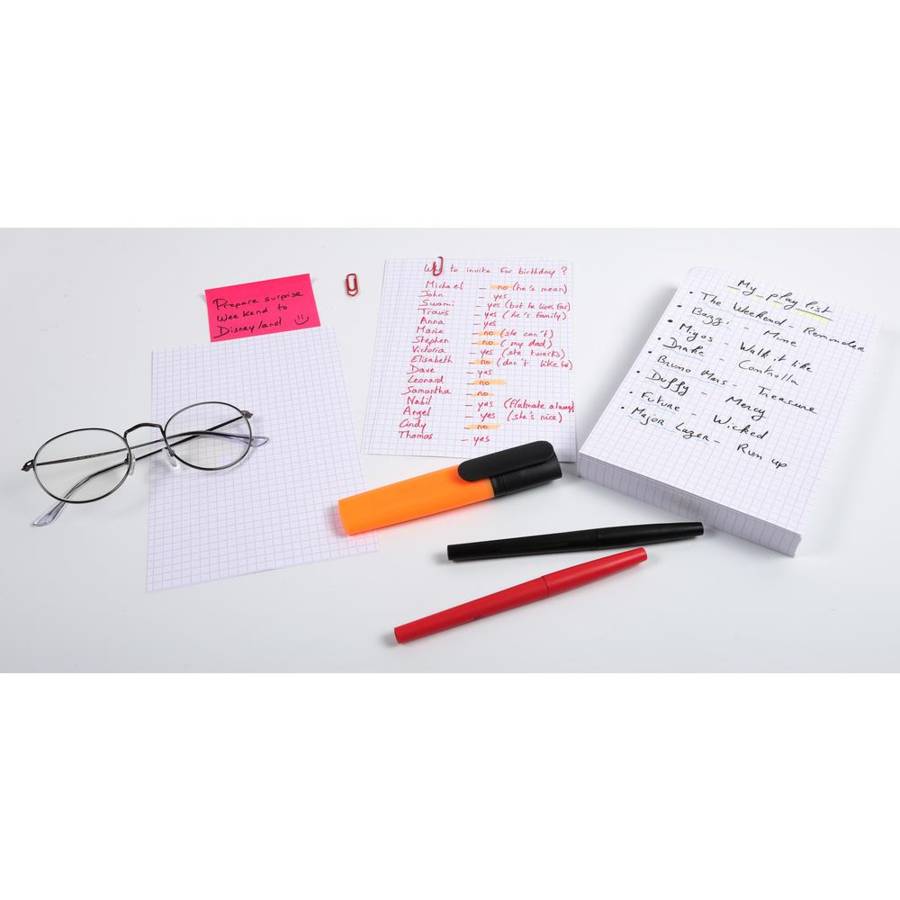 Prepare surprise
Weekend to
Disneyland
Who to invite for birthday ?
Michael - no (he's mean)
John - yes
Swami - yes (but he lives far)
Travis - yes (he's family)
Anna - yes
Marie - no (she can't)
Stephen - no (my dad)
Victoria - yes (she twercks)
Elisabeth - no (don't like her)
Dave - yes
Leonard - no
Samantha - no
Nabil - yes
Angel - yes (she's nice)
Cindy - no
Thomas - yes
My play list
• The Weekend - Remmaler
Bazzi - Mime
• Migos - Walk it like
• Drake - Controlla
• Bruno Mars - Treasure
• Duffy - Mercy
• Future - Wicked
• Major Lazer - Run up